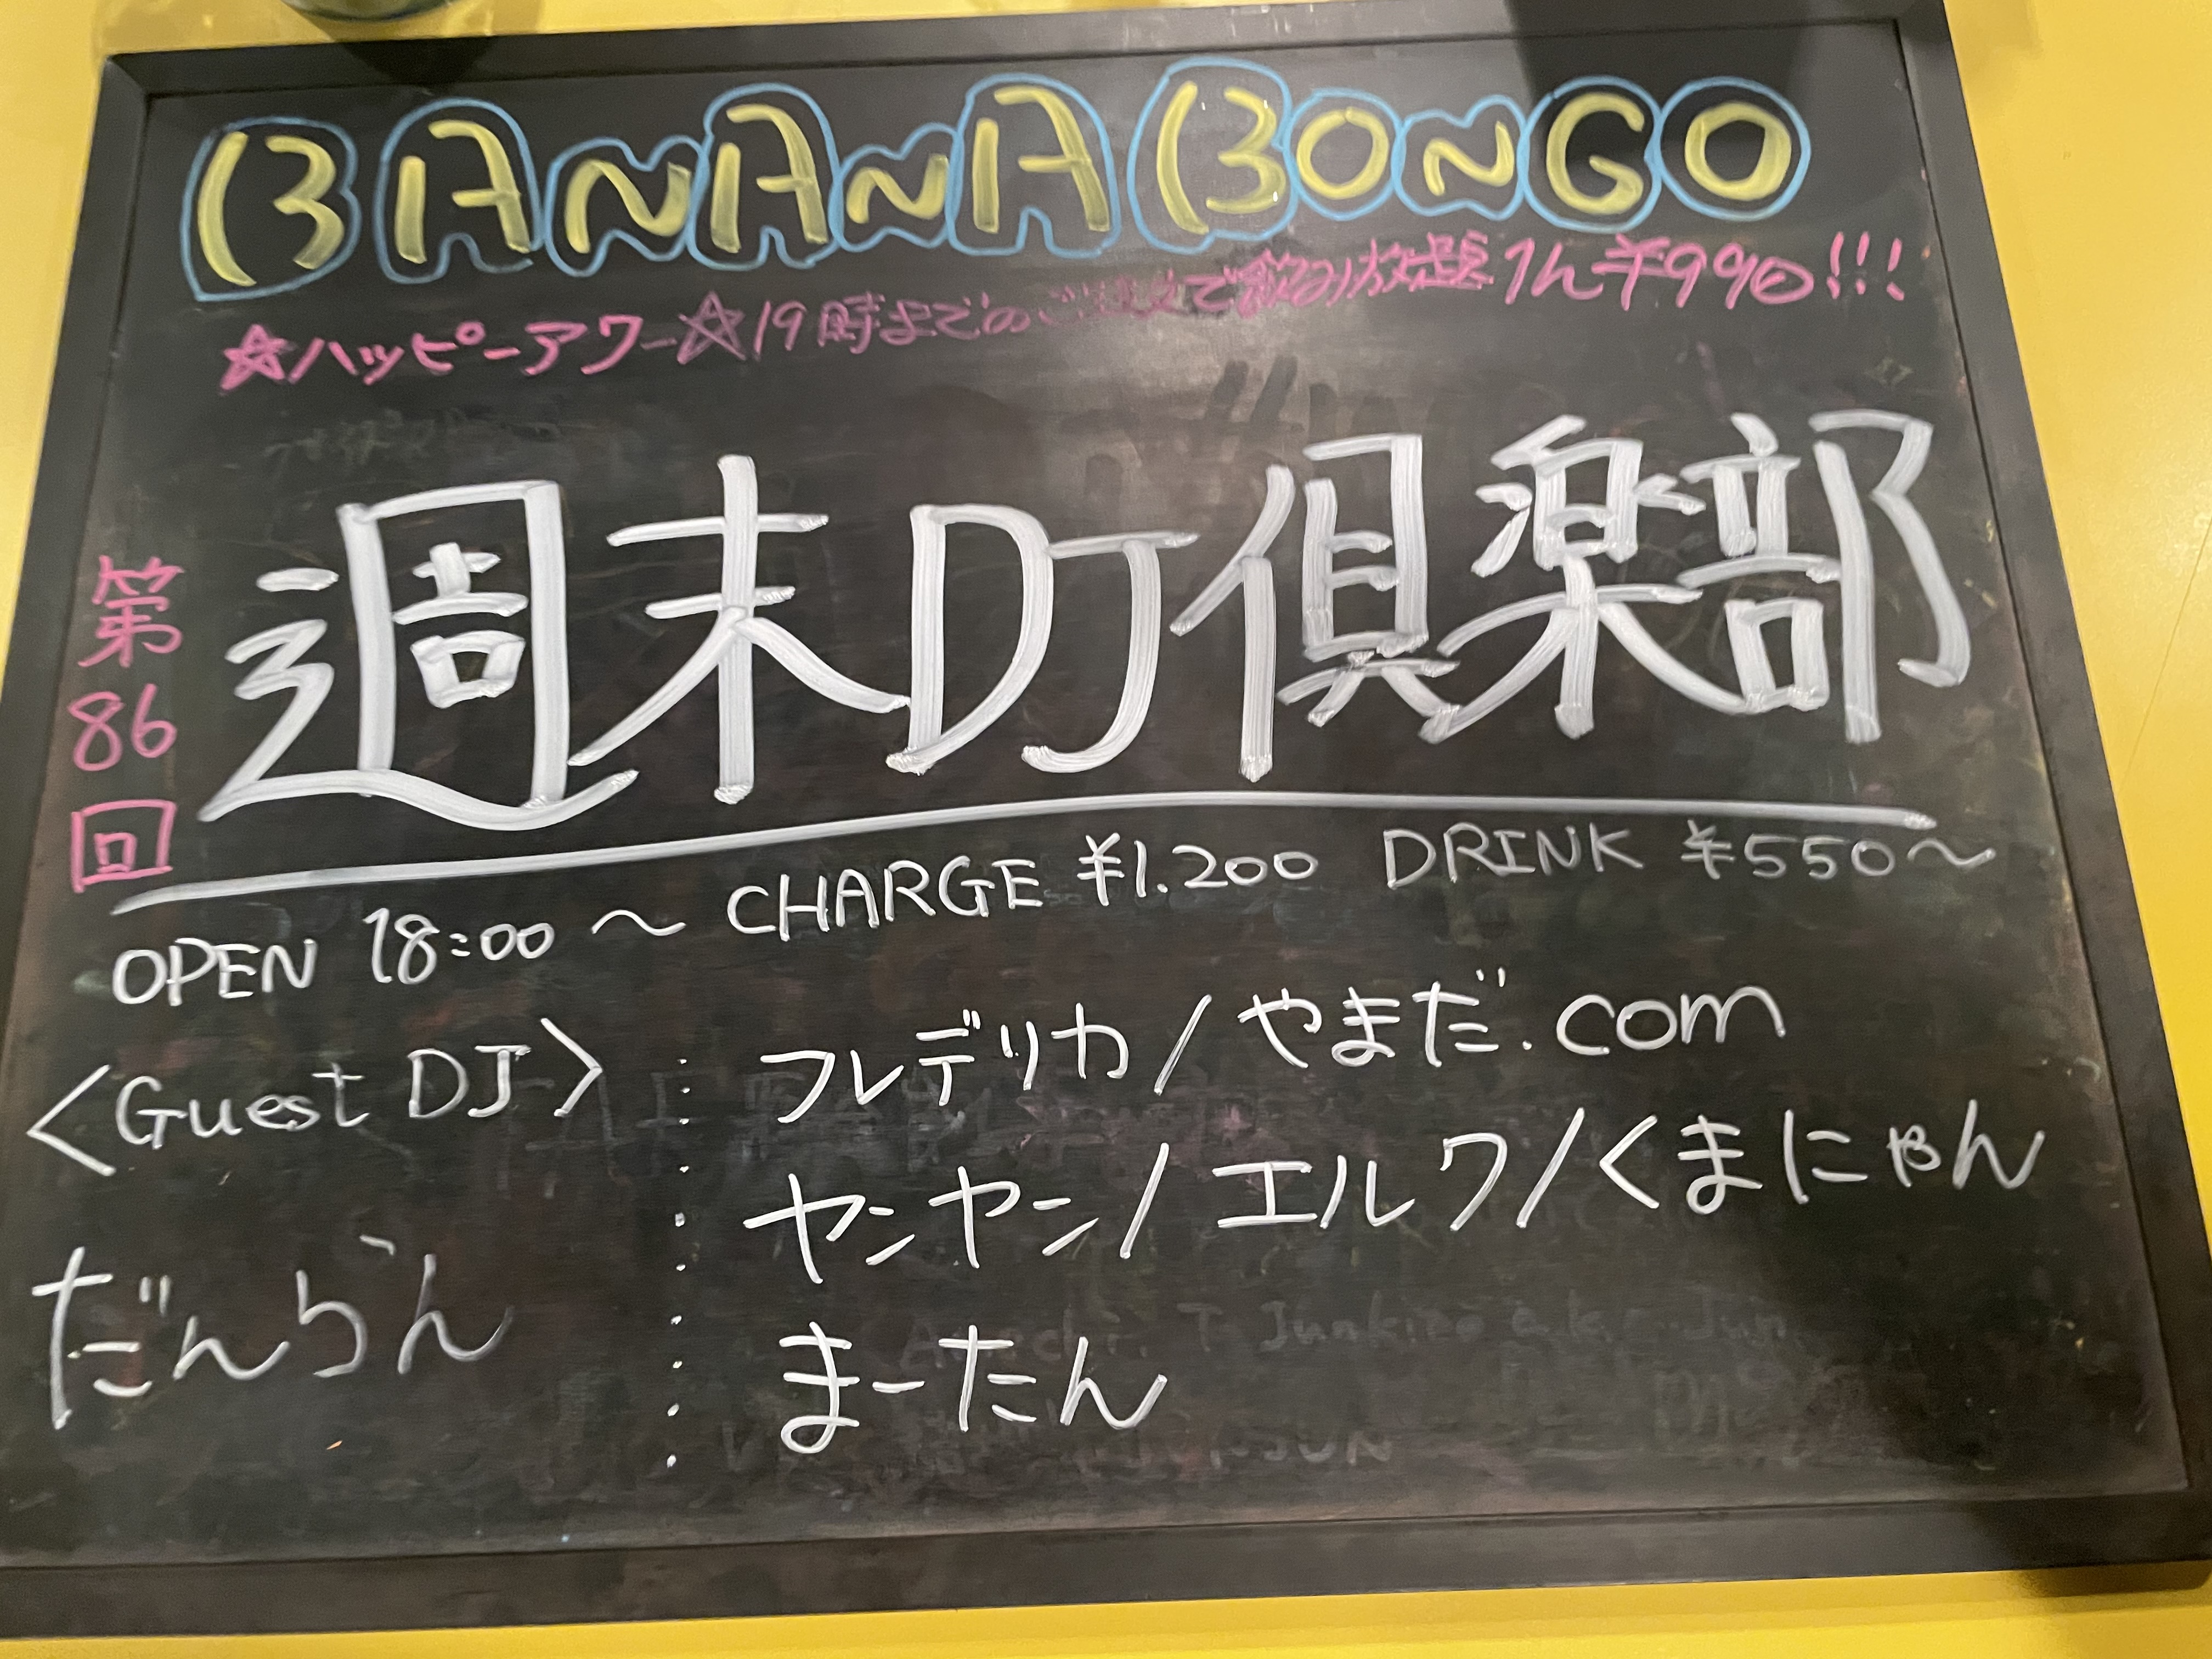 BANANA BONGO
☆ハッピーアワー☆19時までのご注文で飲み放題1h¥990!!!
第86回
週末DJ倶楽部
OPEN 18:00～ CHARGE ¥1.200 DRINK ¥550～
<Guest DJ>
だんらん
フレデリカ/やまだ.com
ヤンヤン/エルワ/くまにゃん
まーたん